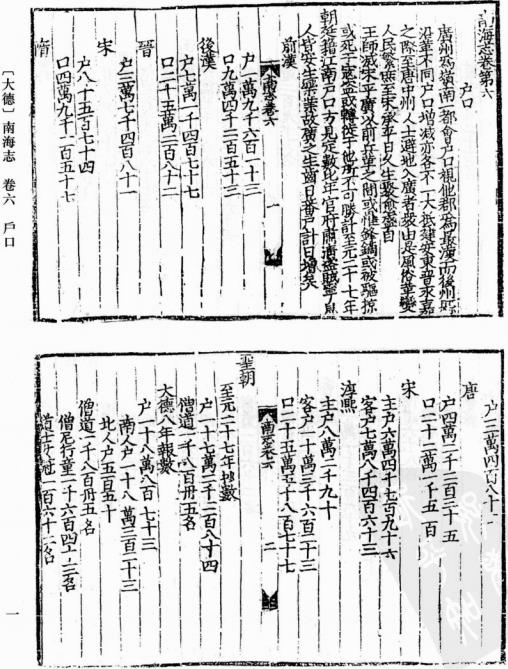 南海志卷第六
户口
廣州為嶺南一都會户口視他郡為最漢而後州郡
沿革不同户口增減亦各不一大抵建安東晉永嘉
之際至唐中州人士避地入廣者衆由是風俗革變
人民繁庶至宋承平日久生聚愈盛自
王師滅宋平廣以前兵革之間或罹鋒鏑或被驅掠
或死於寇盗或轉徙于他所不可勝計至元二十七年
朝廷籍江南户口方見定數比年官府肅清盗
人皆安生樂業故廣之生齒日蕃户計日增矣
前漢
户一萬九千六百一十三
口九萬四千二百五十三
後漢
户七萬一千四百七十七
口二十五萬二百八十二
晉
户三萬七千四百八十
宋
户八千五百七十四
口四萬九千一百五十七
隋
〔大德〕南海志 卷六 戶口
户三萬四百八十
唐
户四萬二千二百三十五
口二十二萬一千五百
宋
主户六萬四千七百九十六
客户七萬八千四百六十三
淳熙
主户八萬二千九十
客户一十萬三千六百一十三
口二十五萬五千八百七十七
南志卷六
二
聖朝
至元二十七年抄數
户一十七萬二百八十四
僧道一千八百卅五名
大德八年報數
户一十八萬八百七十三
南人户一十八萬三百二十三
北人户五百五十
僧道一千八百卅五名
僧尼行童一千六百四十二名
道士女冠一百六十二名
一